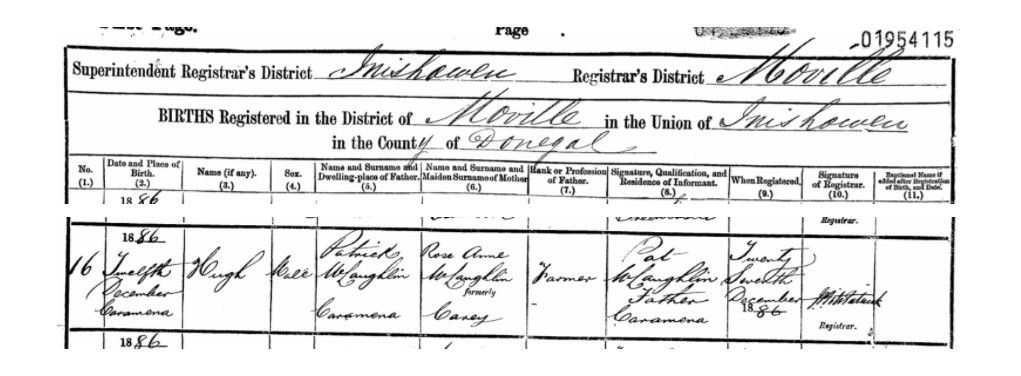 Page
01954115
Superintendent Registrar's District Inishowen Registrar's District Moville
BIRTHS Registered in the District of Moville in the Union of Inishowen
in the County of Donegal
No. (1.) Date and Place of Birth. (2.) Name (if any). (3.) Sex. (4.) Name and Surname and Dwelling-place of Father. (5.) Name and Surname and Maiden Surname of Mother (6.) Rank or Profession of Father. (7.) Signature, Qualification, and Residence of Informant. (8.) When Registered. (9.) Signature of Registrar. (10.) Baptismal Name if added after Registration of Birth, and Date. (11.)
1886
Registrar.
1886
16 Twelfth December Caramena
Hugh
Male
Patrick McLaughlin Caramena
Rose Anne McLaughlin formerly Carey
Farmer
Pat McLaughlin Father Caramena
Twenty Seventh December 1886
Registrar.
1886